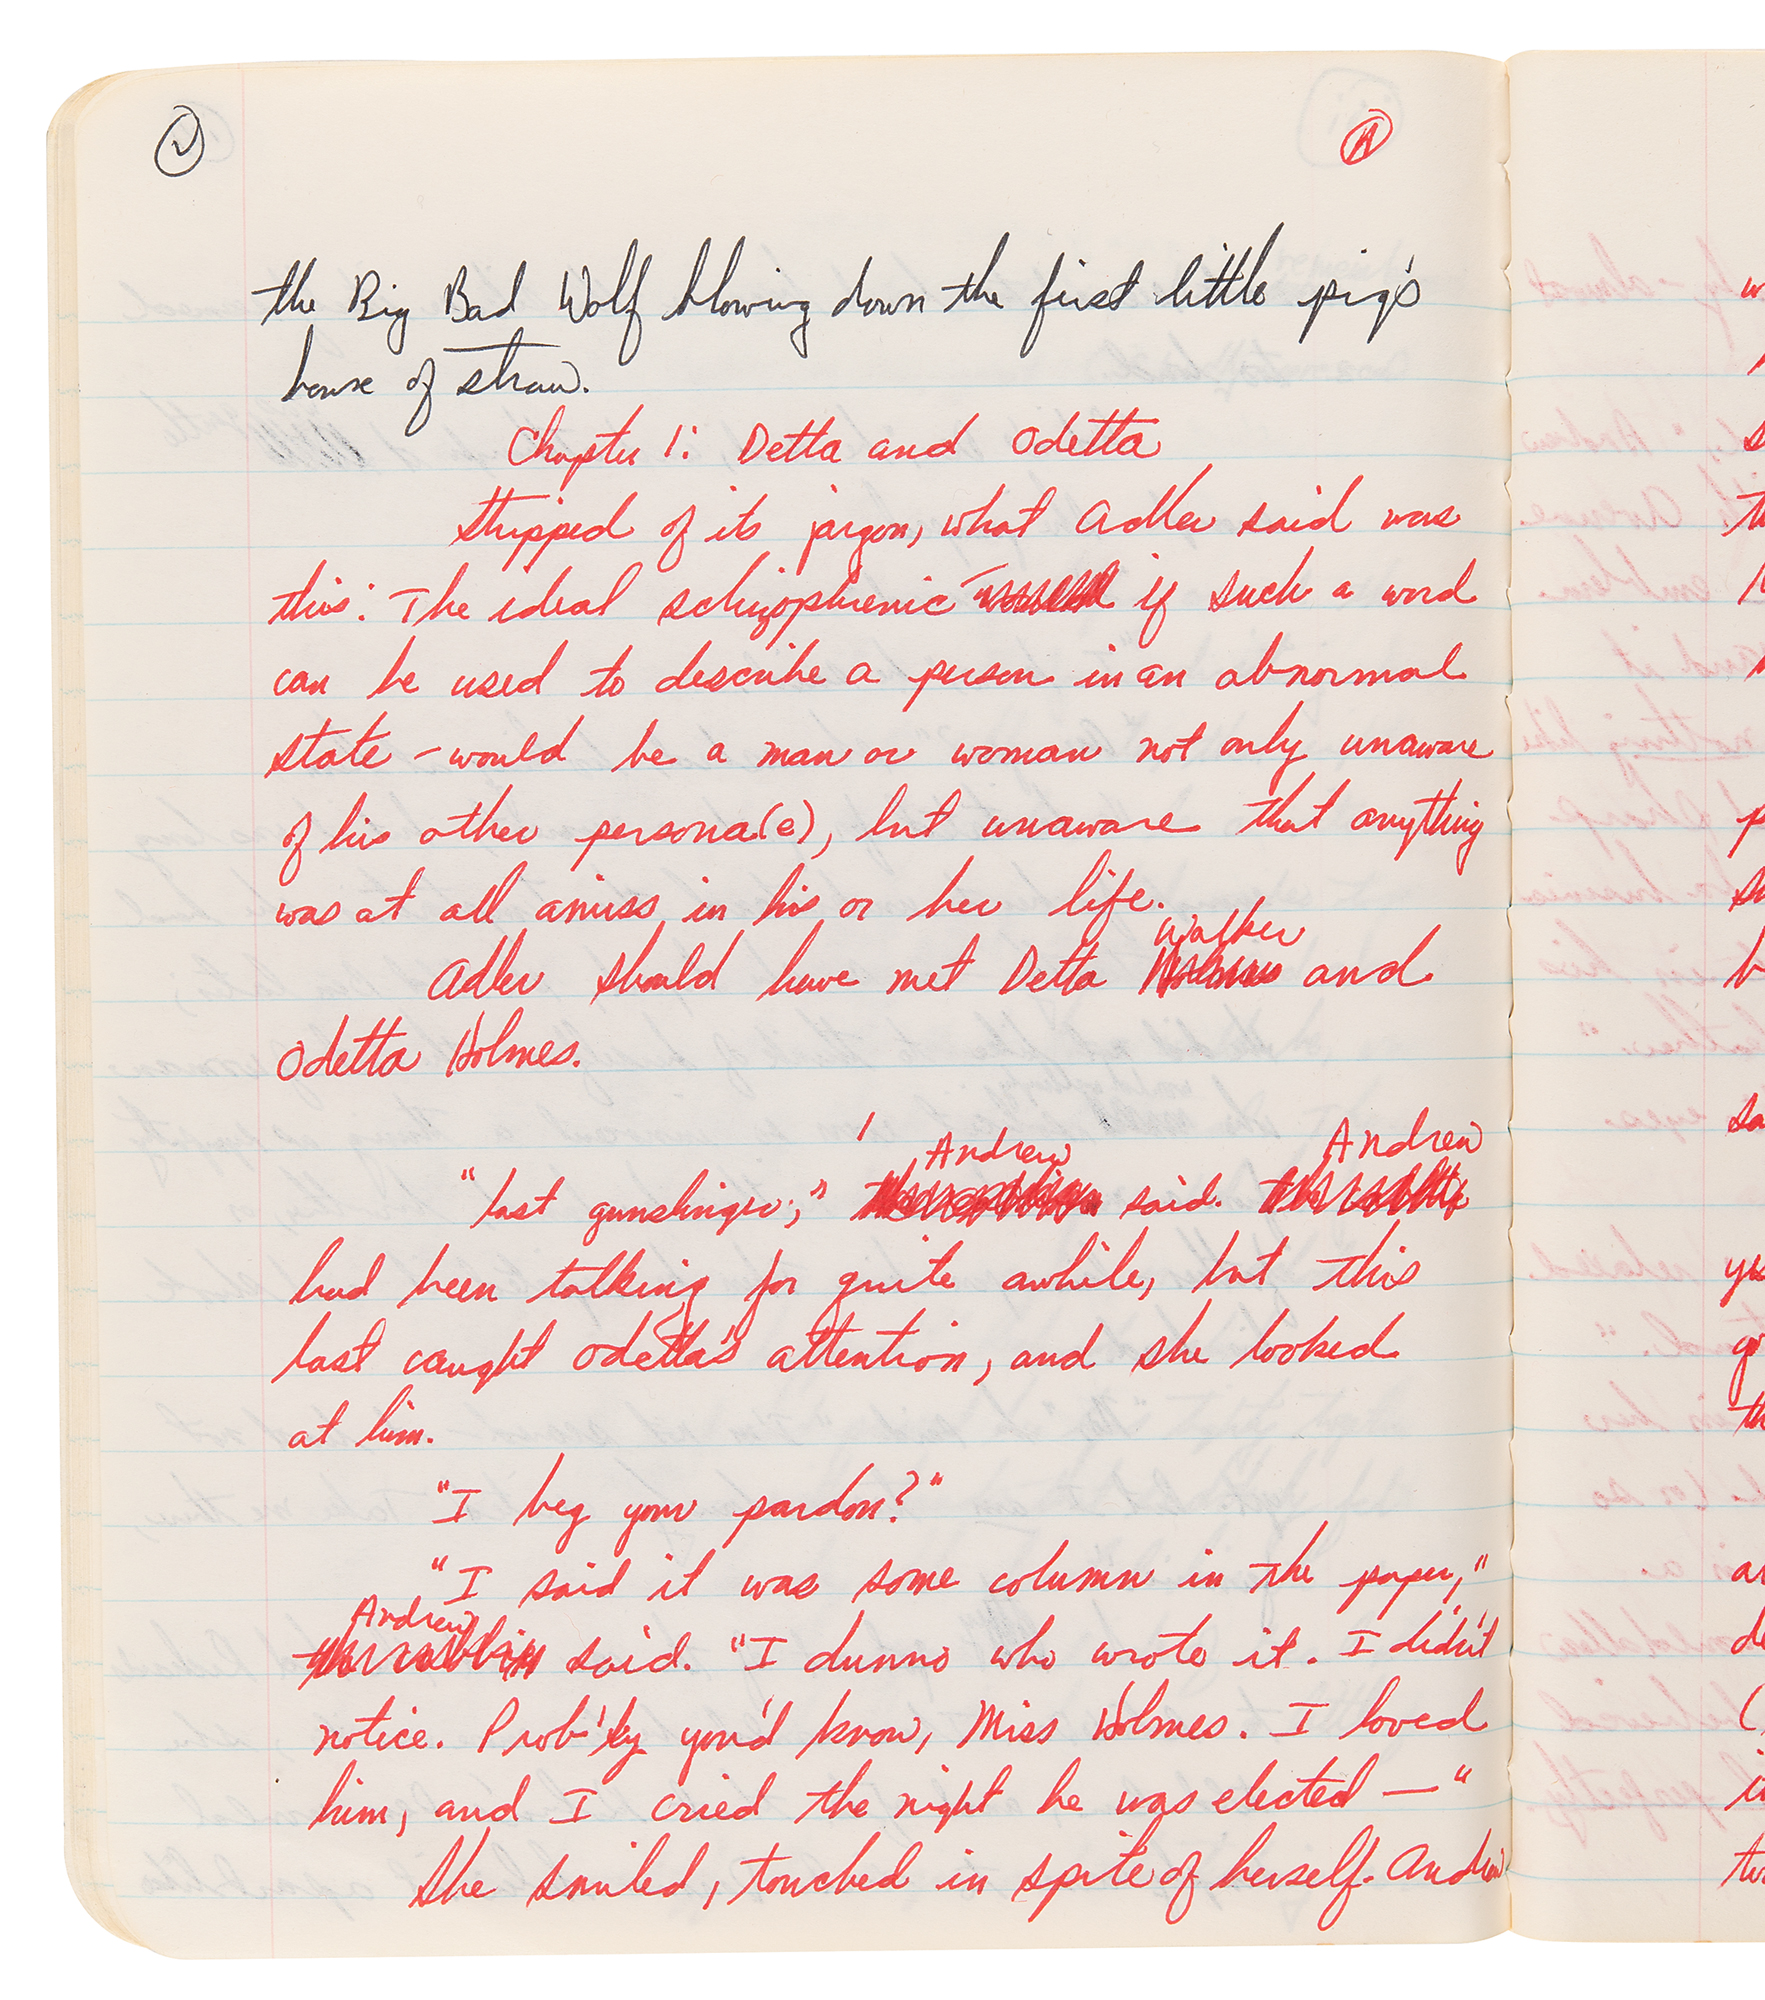 the Big Bad Wolf blowing down the first little pig's
house of straw.
Chapter 1: Detta and Odetta
Stripped of its jargon, what Adler said was
this: The ideal schizophrenic if such a word
can be used to describe a person in an abnormal
state – would be a man or woman not only unaware
of his other persona(e), but unaware that anything
was at all amiss in his or her life.
Walker
Adler should have met Detta Holmes and
Odetta Holmes.
1
Andrew Andrew
"last gunslinger," said.
had been talking for quite awhile, but this
last caught Odetta's attention, and she looked
at him.
"I beg your pardon?"
"I said it was some column in the paper,"
Andrew
said. "I dunno who wrote it. I didn't
notice. Prob'ly you'd know, Miss Holmes. I loved
him, and I cried the night he was elected —"
She smiled, touched in spite of herself. Andrew